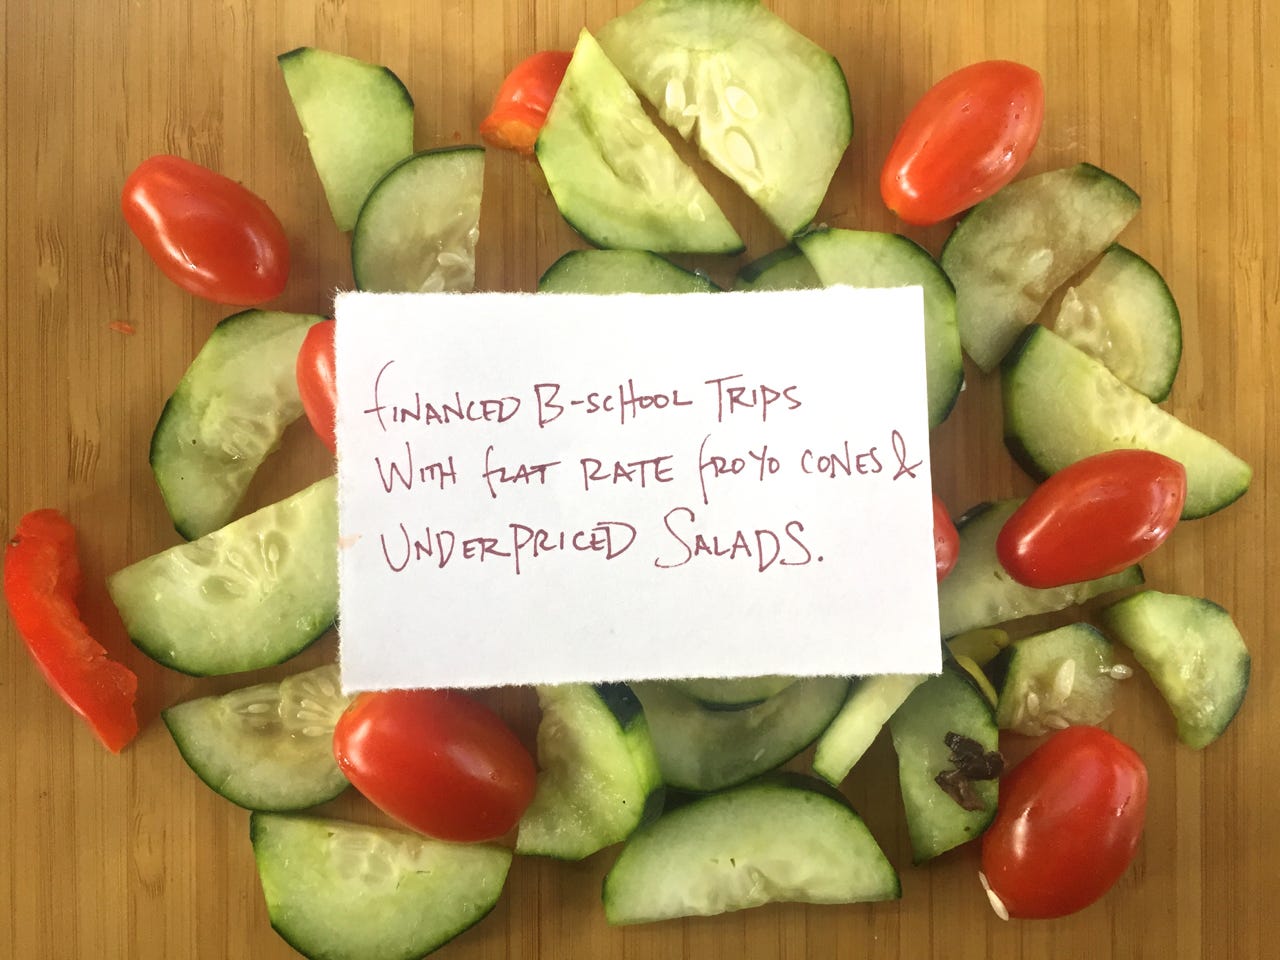 FINANCED B-SCHOOL TRIPS
WITH FLAT RATE FROYO CONES &
UNDERPRICED SALADS.